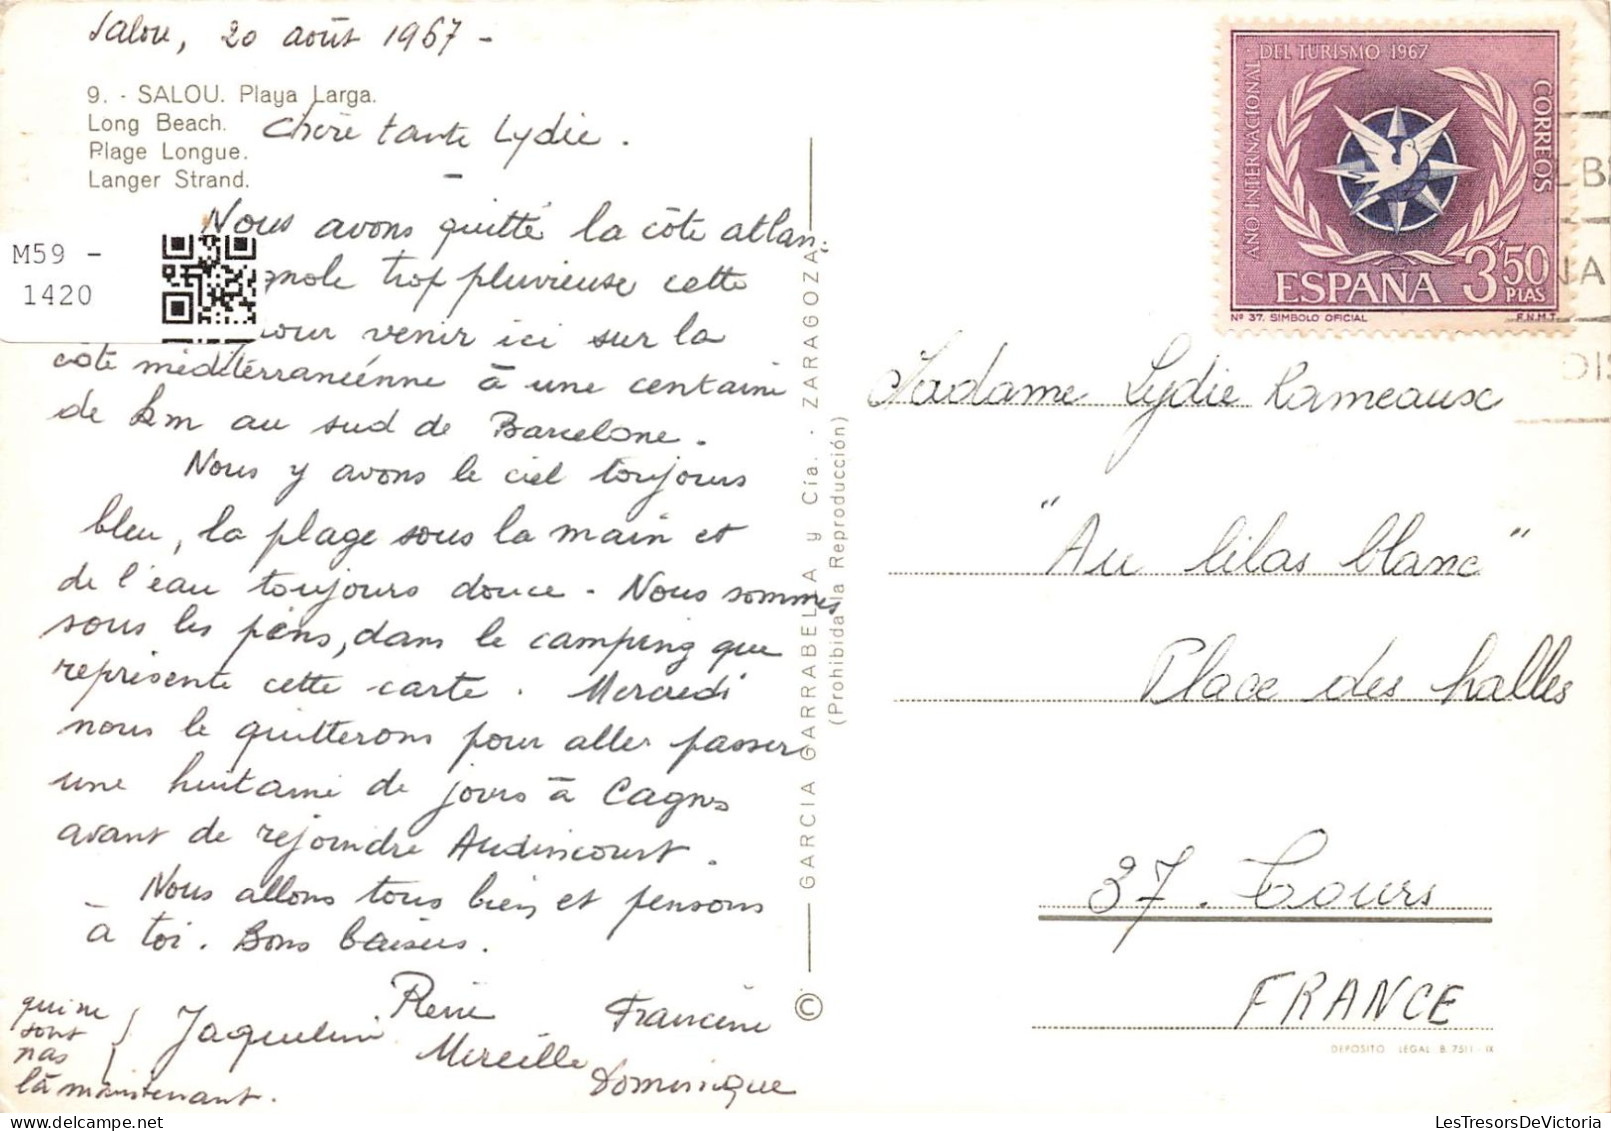 Salou, 20 août 1967 -
9. - SALOU. Playa Larga.
Long Beach.
Plage Longue.
Langer Strand.
Chère tante Lydie.
M59 -
1420
Nous avons quitté la côte atlan-
gnole trop pluvieuse cette
pour venir ici sur la
côte méditerranéenne à une centaine
de km au sud de Barcelone.
Nous y avons le ciel toujours
bleu, la plage sous la main et
de l'eau toujours douce. Nous sommes
sous les pins, dans le camping que
représente cette carte. Mercredi
nous le quitterons pour aller passer
une huitaine de jours à Cagnes
avant de rejoindre Audincourt.
Nous allons tous bien et pensons
à toi. Bons baisers.
Pierre Francine
Jaqueline Mireille Dominique
qui ne
sont
pas
là maintenant.
GARCIA GARRABELLA y Cía. - ZARAGOZA
(Prohibida la Reproducción)
©
AÑO INTERNACIONAL DEL TURISMO 1967
CORREOS
ESPAÑA 3'50 PTAS
Nº 37. SIMBOLO OFICIAL F.N.M.T.
Madame Lydie Rameaux
"Au lilas blanc"
Place des halles
37. Tours
FRANCE
DEPOSITO LEGAL B. 7511 - IX
www.LesTresorsDeVictoria.com